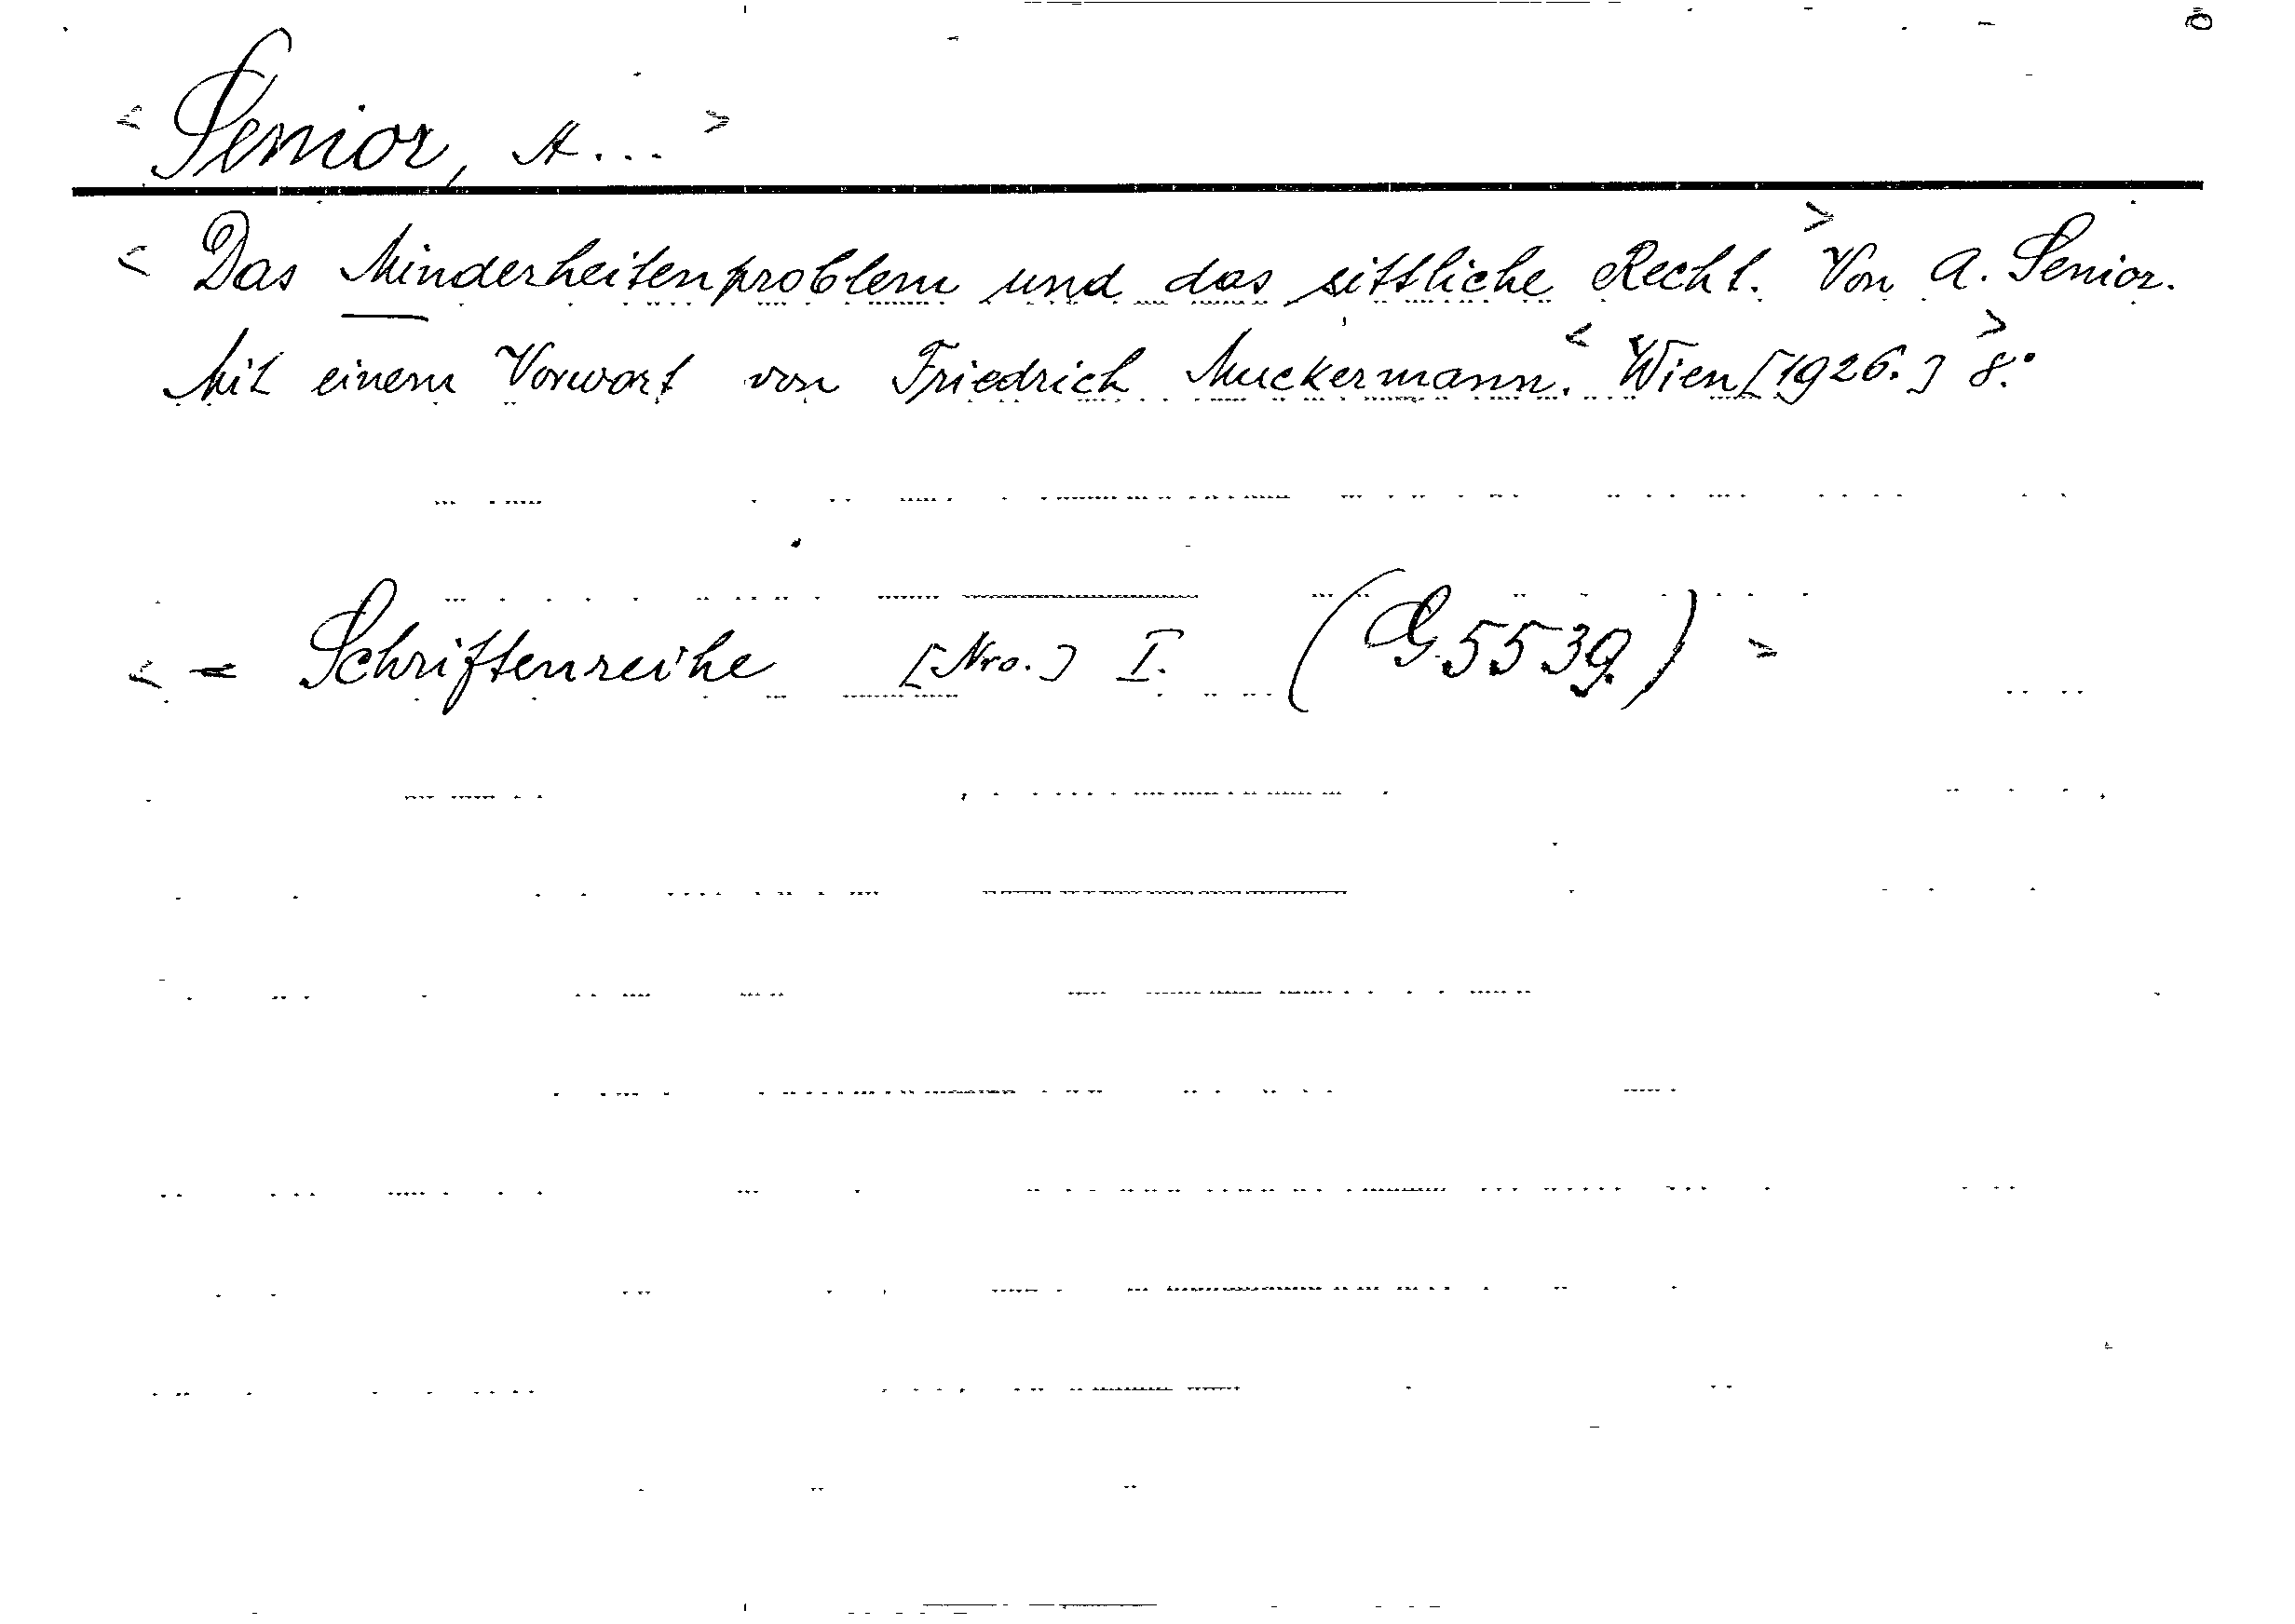 < Senior, A... >
< Das Minderheitenproblem und das sittliche Recht. > Von A. Senior.
Mit einem Vorwort von Friedrich Muckermann. < Wien [1926.] 8.° >
< = Schriftenreihe [Nro.] I. (G 5539.) >